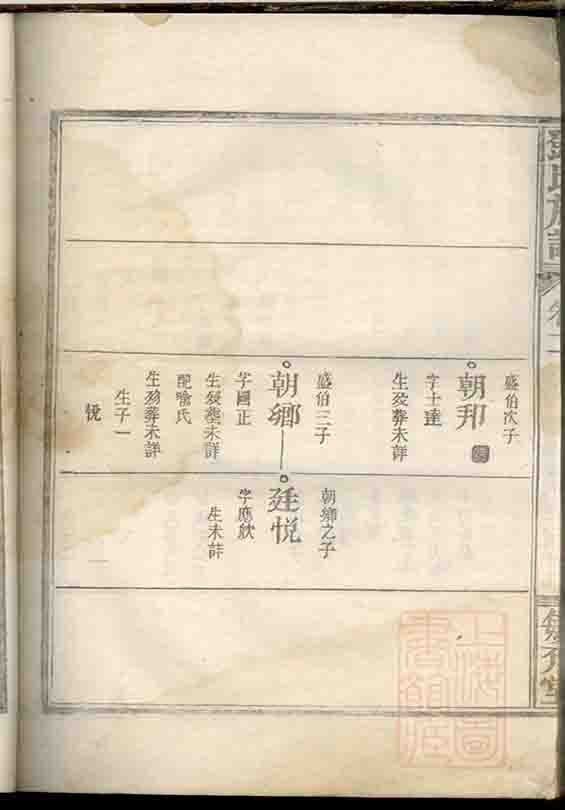 鄧氏族譜
卷二
盛伯次子
朝邦
字士達
生歿葬未詳
盛伯三子
朝鄉
字國正
生歿葬未詳
配喻氏
生歿葬未詳
生子一
悦
朝鄉之子
廷悦
字應欣
生未詳
上海圖
書館藏